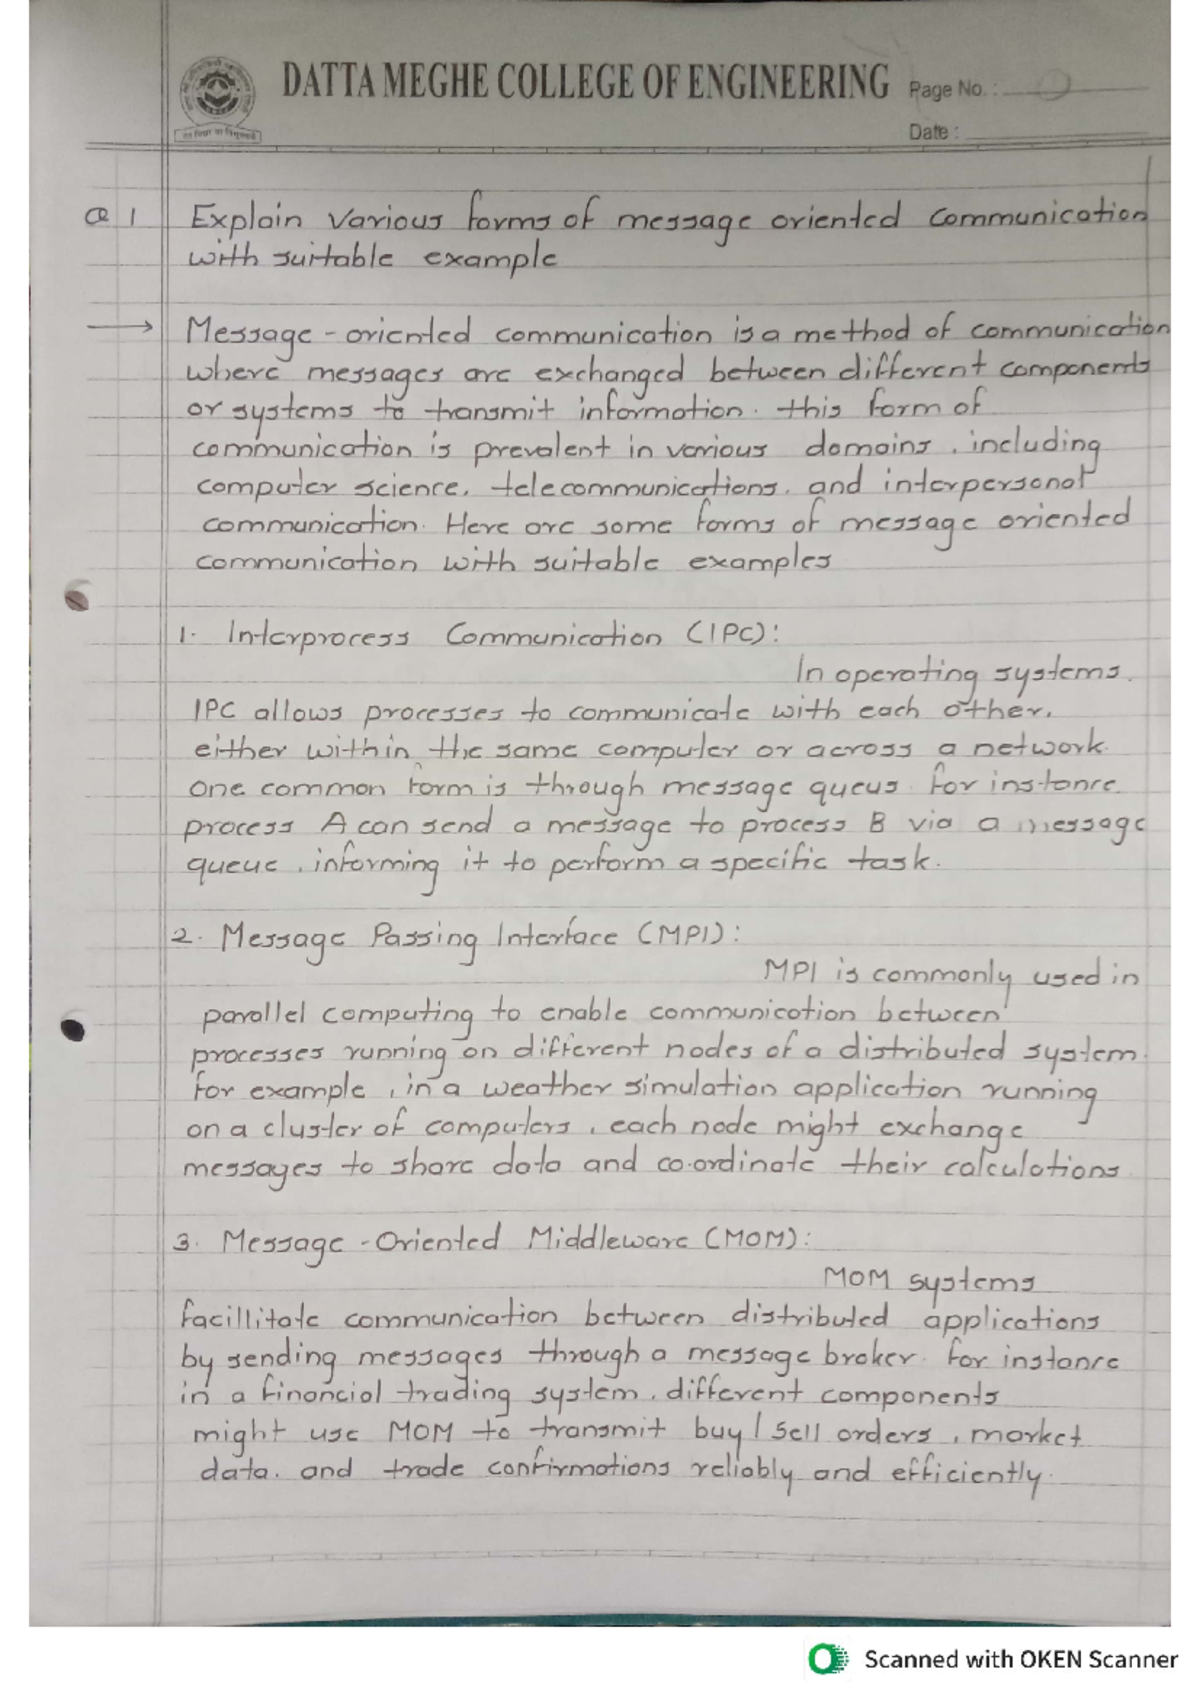 DATTA MEGHE COLLEGE OF ENGINEERING Page No. :
Date :
Q 1 Explain various forms of message oriented communication
with suitable example
→ Message - oriented communication is a method of communication
where messages are exchanged between different components
or systems to transmit information. this form of
communication is prevalent in various domains, including
computer science, telecommunications, and interpersonal
communication. Here are some forms of message oriented
communication with suitable examples
1. Interprocess Communication (IPC):
In operating systems,
IPC allows processes to communicate with each other,
either within the same computer or across a network.
one common form is through message queus. For instance
process A can send a message to process B via a message
queue, informing it to perform a specific task.
2. Message Passing Interface (MPI):
MPI is commonly used in
parallel computing to enable communication between
processes running on different nodes of a distributed system.
For example, in a weather simulation application running
on a cluster of computers, each node might exchange
messages to share data and co-ordinate their calculations
3. Message - Oriented Middleware (MOM):
MOM systems
facillitate communication between distributed applications
by sending messages through a message broker. For instance
in a financial trading system, different components
might use MOM to transmit buy / sell orders, market
data, and trade confirmations reliably and efficiently.
Scanned with OKEN Scanner